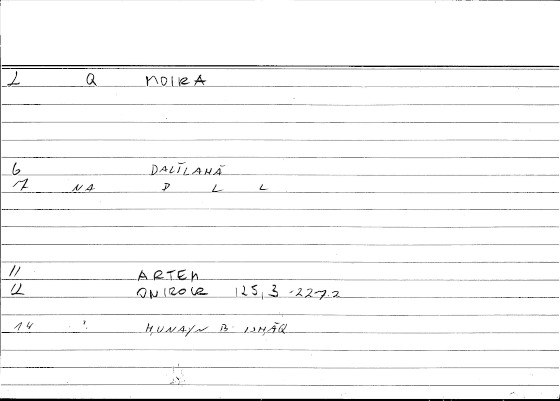 L Q MOIRA
6 DALĪLAHĀ
7 NA D L L
11 ARTEM
12 ONIROCR 125,3 -227.2
14 HUNAYN B ISHĀQ